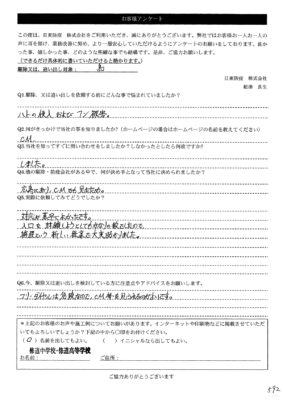 お客様アンケート
この度は、日東防疫 株式会社をご利用いただき、誠にありがとうございます。弊社ではお客様お一人お一人の
声に耳を傾け、業務改善に努め、より一層安心していただけるようにアンケートのお願いをしております。良か
った事、嬉しかった事、どのような些細な事でも結構です。是非、ご協力お願いします。
(できるだけ具体的に書いていただけると助かります。)
日東防疫 株式会社
駆除又は、追い出し対象: 鳥
Q1.駆除、又は追い出しを依頼する前にどんな事で悩まれていましたか?
ハトの侵入 および フン被害。
Q2.何がきっかけで当社の事を知りましたか?(ホームページの場合はホームページの名前を教えてください)
CM
Q3.当社を知ってすぐに問い合わせをしましたか?しなかったとしたら何故ですか?
しました。
Q4.他の駆除・防疫会社がある中で、何が決め手となって当社に決められましたか?
広島にあり、CMでも見たため。
Q5.実際に依頼してみてどうでしたか?
対応が素早くてよかったです。
Q6.今、駆除又は追い出しを検討している方に注意点やアドバイスをお願いします。
フリーダイヤルは
*上記のお客様のお声や施工例についてお願いがあります。インターネットや印刷物などに掲載させていただ
いてもよろしいでしょうか?下記の中から○印をお付けください。
(○)名前を出してもよい。 ( )イニシャルなら出してもよい。
修道中学校・修道高等学校
お名前: ご住所:
ご協力ありがとうございます
592